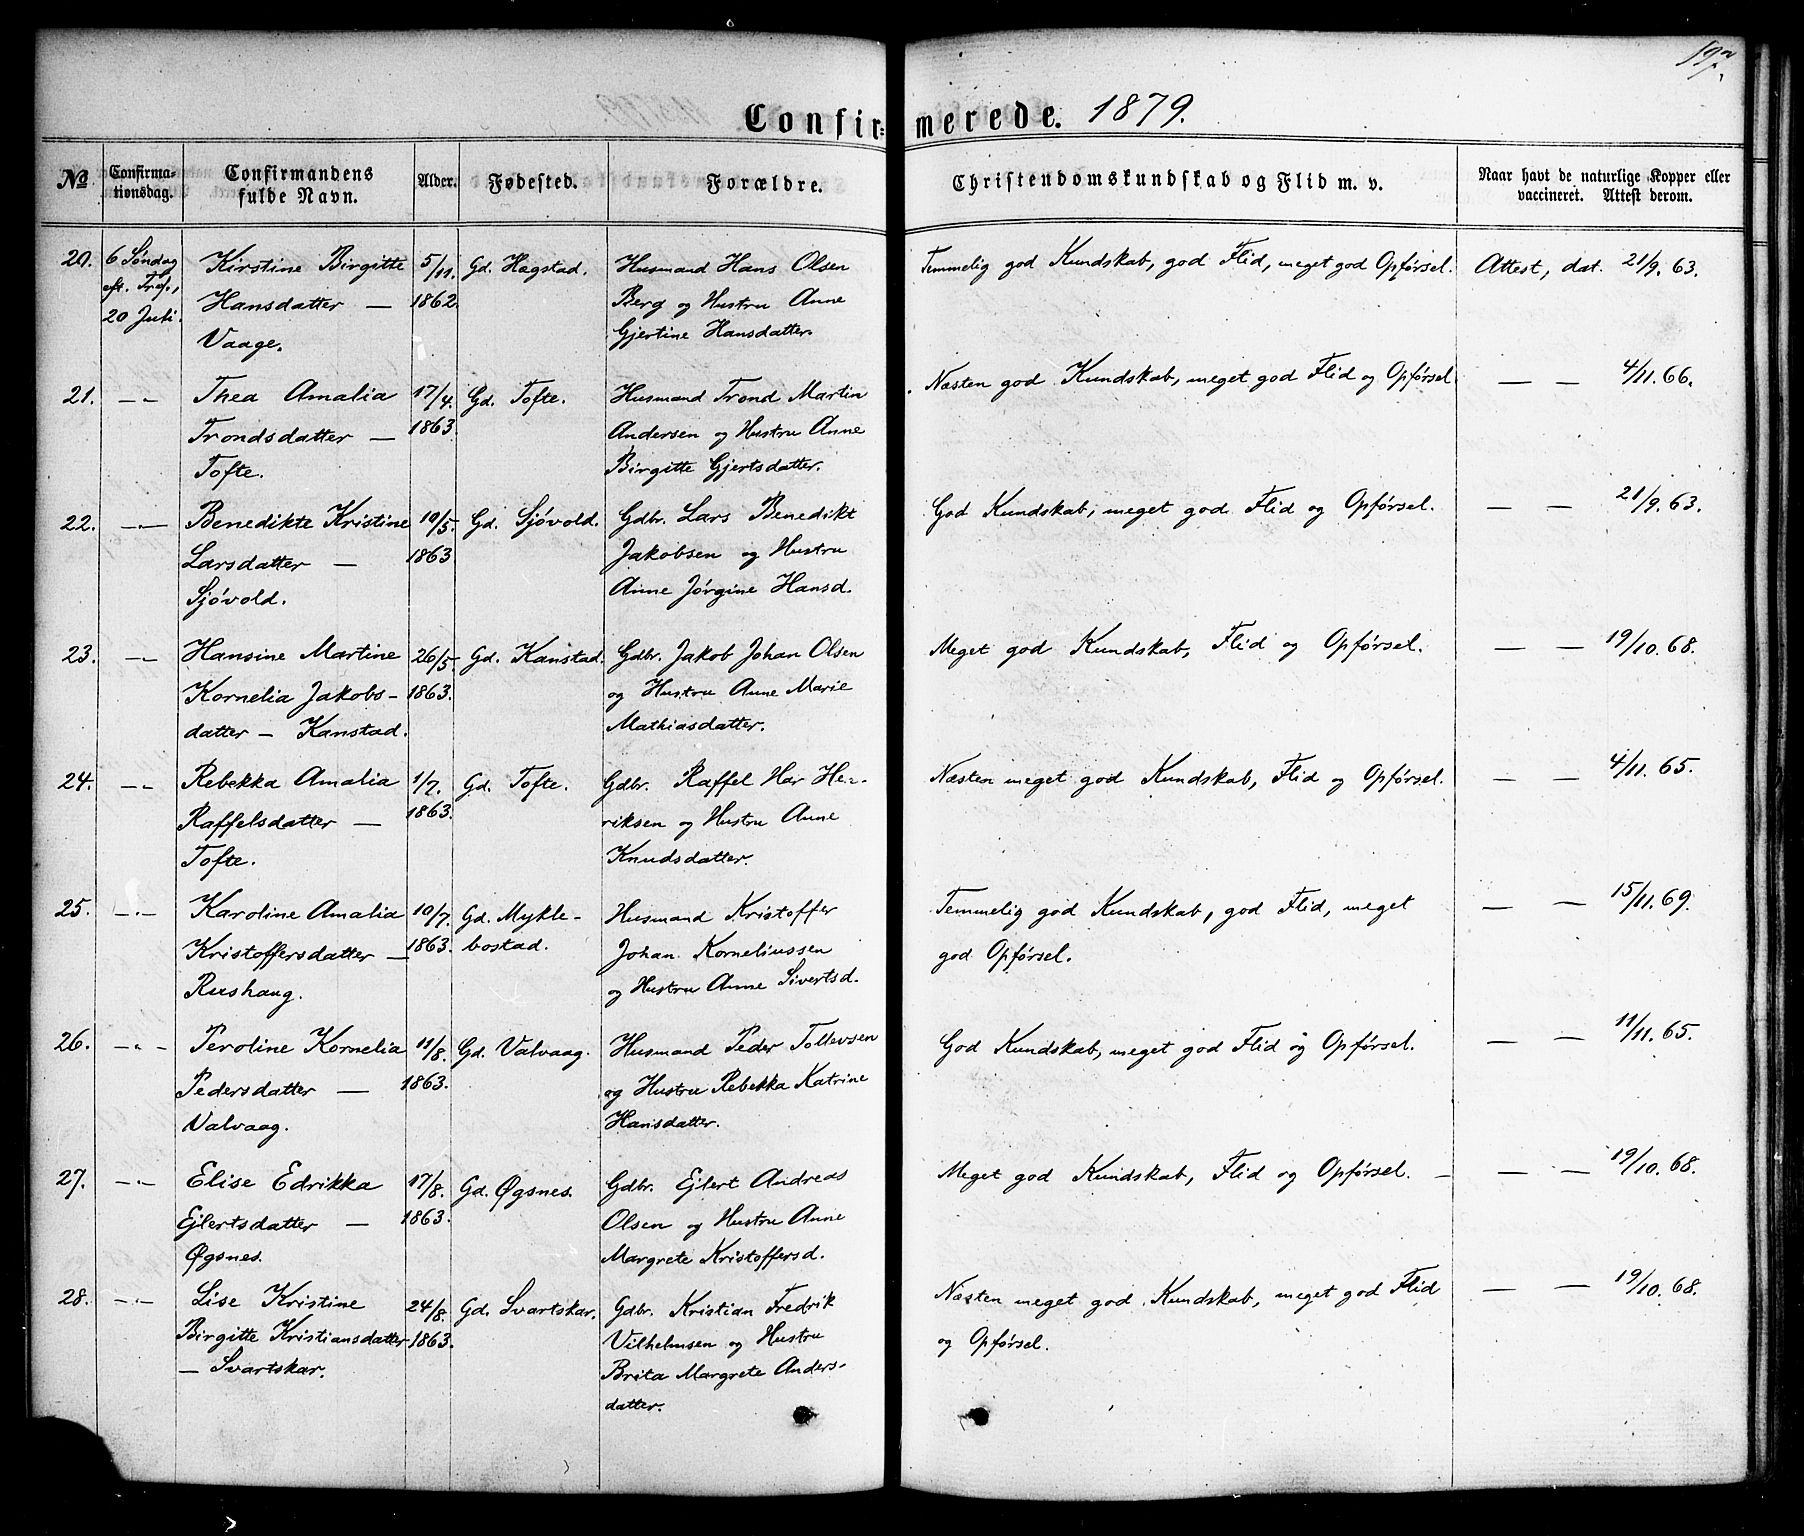 197.
Confirmerede. 1879.
No
Confirmationsdag.
Confirmandens fulde Navn.
Alder.
Fødested.
Forældre.
Christendomskundskab og Flid m. v.
Naar havt de naturlige Kopper eller vaccineret. Attest derom.
20.
6 Søndag
eft. Tref.,
20 Juli.
Kirstine Birgitte
Hansdatter —
Vaage.
5/11.
1862.
Gd. Hagstad.
Husmand Hans Olsen
Berg og Hustru Anne
Gjertine Hansdatter.
Temmelig god Kundskab, god Flid, meget god Opførsel.
Attest, dat. 21/9. 63.
21.
—„—
Thea Amalia
Trondsdatter —
Tofte.
17/4.
1863.
Gd. Tofte.
Husmand Trond Martin
Andersen og Hustru Anne
Birgitte Gjertsdatter.
Næsten god Kundskab, meget god Flid og Opførsel
— — 4/11. 66.
22.
—„—
Benedikte Kristine
Larsdatter —
Sjövold.
10/5.
1863
Gd. Sjövold.
Gdbr. Lars Benedikt
Jakobsen og Hustru
Anne Jörgine Hansd.
God Kundskab, meget god Flid og Opførsel.
— — 21/9. 63.
23.
—„—
Hansine Martine
Kornelia Jakobs-
datter — Kanstad.
26/5.
1863.
Gd. Kanstad.
Gdbr. Jakob Johan Olsen
og Hustru Anne Marie
Mathiasdatter.
Meget god Kundskab, Flid og Opførsel.
— — 19/10. 68.
24.
—„—
Rebekka Amalia
Raffelsdatter —
Tofte.
1/7.
1863.
Gd. Tofte.
Gdbr. Raffel Har He-
riksen og Hustru Anne
Knudsdatter.
Næsten meget god Kundskab, Flid og Opførsel.
— — 4/11. 65.
25.
—„—
Karoline Amalia
Kristoffersdatter —
Rushaug.
10/7.
1863.
Gd. Mykle-
bostad.
Husmand Kristoffer
Johan Korneliussen
og Hustru Anne Sivertsd.
Temmelig god Kundskab, god Flid, meget
god Opførsel.
— — 15/11. 69.
26.
—„—
Peroline Kornelia
Pedersdatter —
Valvaag.
11/8.
1863.
Gd. Valvaag.
Husmand Peder Tollevsen
og Hustru Rebekka Katrine
Hansdatter.
God Kundskab, meget god Flid og Opførsel.
— — 11/11. 65.
27.
—„—
Elise Edrikka
Ejlertsdatter —
Øgsnes.
17/8.
1863.
Gd. Øgsnes.
Gdbr. Ejlert Andreas
Olsen og Hustru Anne
Margrete Kristoffersd.
Meget god Kundskab, Flid og Opførsel. —
— — 19/10. 68.
28.
—„—
Lise Kristine
Birgitte Kristiansdatter
— Svartskar.
24/8.
1863.
Gd. Svartskar.
Gdbr. Kristian Fredrik
Vilhelmsen og Hustru
Brita Margrete Anders-
datter.
Næsten meget god Kundskab, meget god Flid
og Opførsel.
— — 19/10. 68.